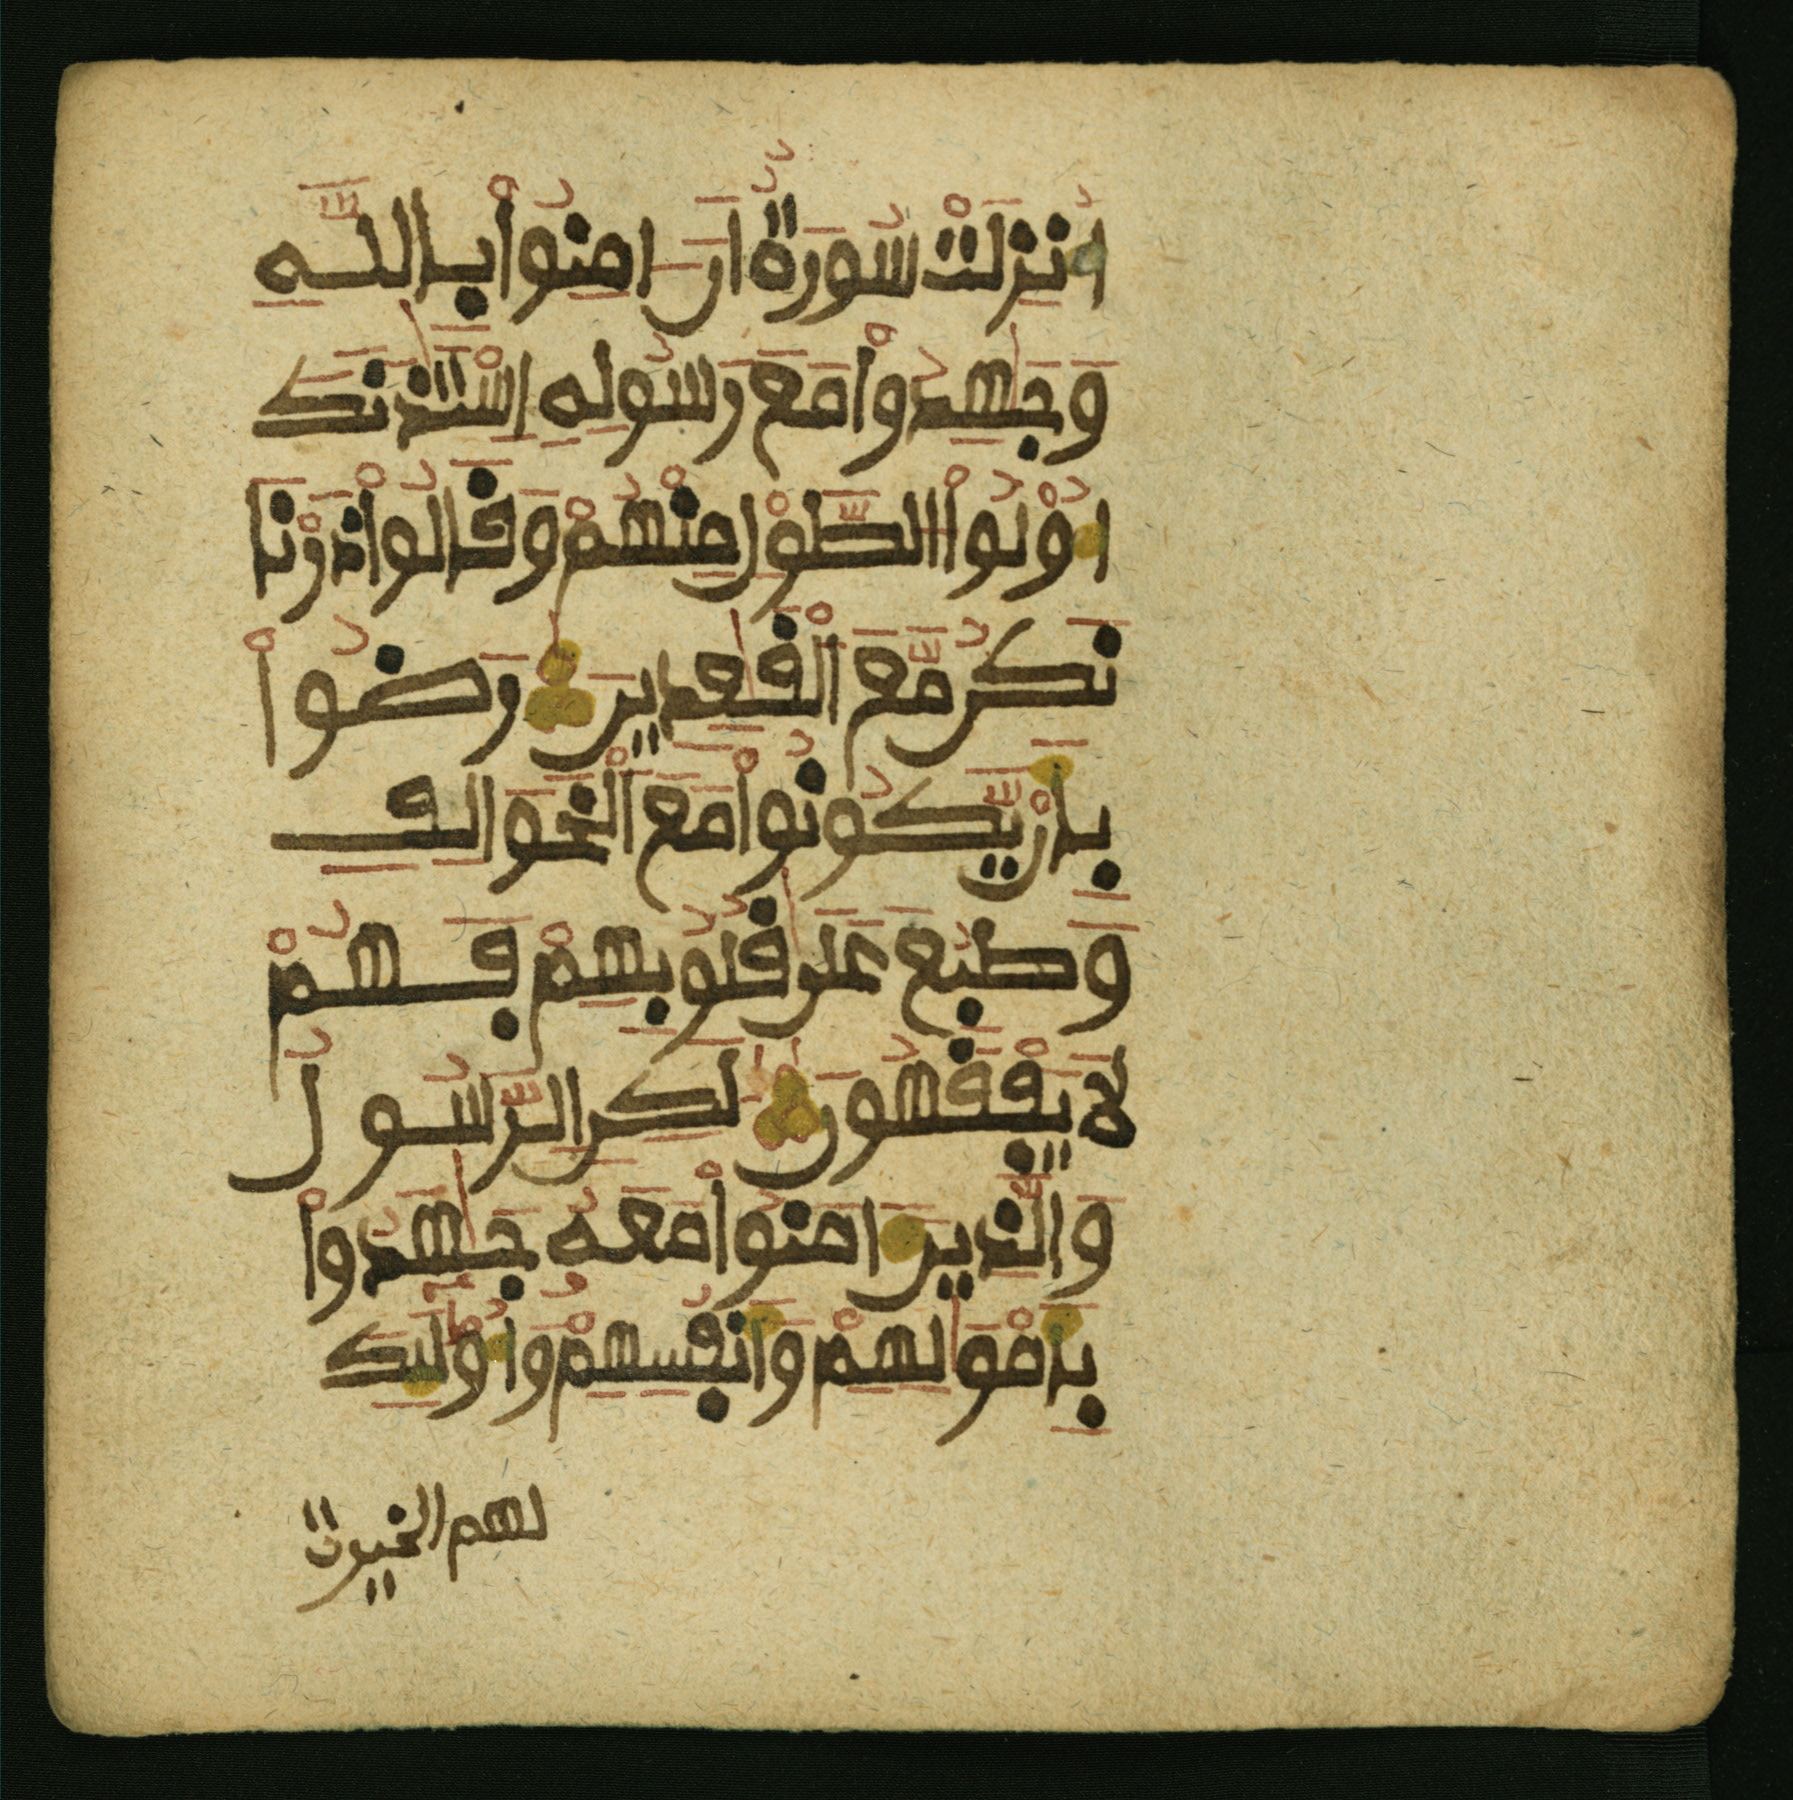 أُنزِلَتْ سُورَةٌ أَنَ امِنُواْ بِاللَّهِ
وَجَٰهِدُواْ مَعَ رَسُولِهِ اِسْتَـٔذَنَكَ
أُوْلُواْ الطَّوْلِ مِنْهُمْ وَقَالُواْ ذَرْنَا
نَكُن مَّعَ الْقَٰعِدِينَ رَضُواْ
بِأَنْ يَّكُونُواْ مَعَ الْخَوَالِفِ
وَطُبِعَ عَلَىٰ قُلُوبِهِمْ فَهُمْ
لَا يَفْقَهُونَ لَٰكِنِ الرَّسُولُ
وَالَّذِينَ ءَامَنُواْ مَعَهُ جَٰهَدُواْ
بِأَمْوَٰلِهِمْ وَأَنفُسِهِمْ وَأُوْلَٰٓئِكَ
لهم الخيرت